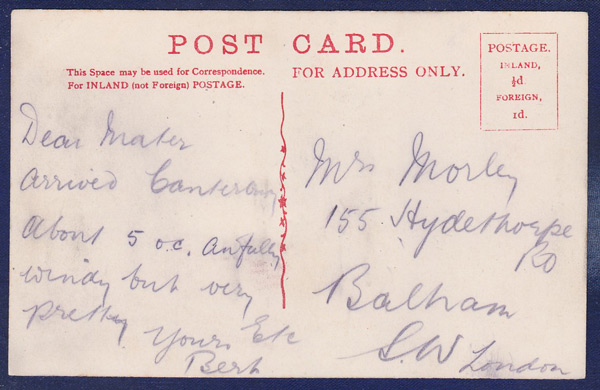 POST CARD.
This Space may be used for Correspondence.
For INLAND (not Foreign) POSTAGE.
FOR ADDRESS ONLY.
POSTAGE.
INLAND,
½d.
FOREIGN,
1d.
Dear Mater
Arrived Canterbury
About 5 o.c. Awfully
windy but very
pretty
Yours Etc
Bert
Mrs Morley
155 Hydethorpe
Rd
Balham
S.W London